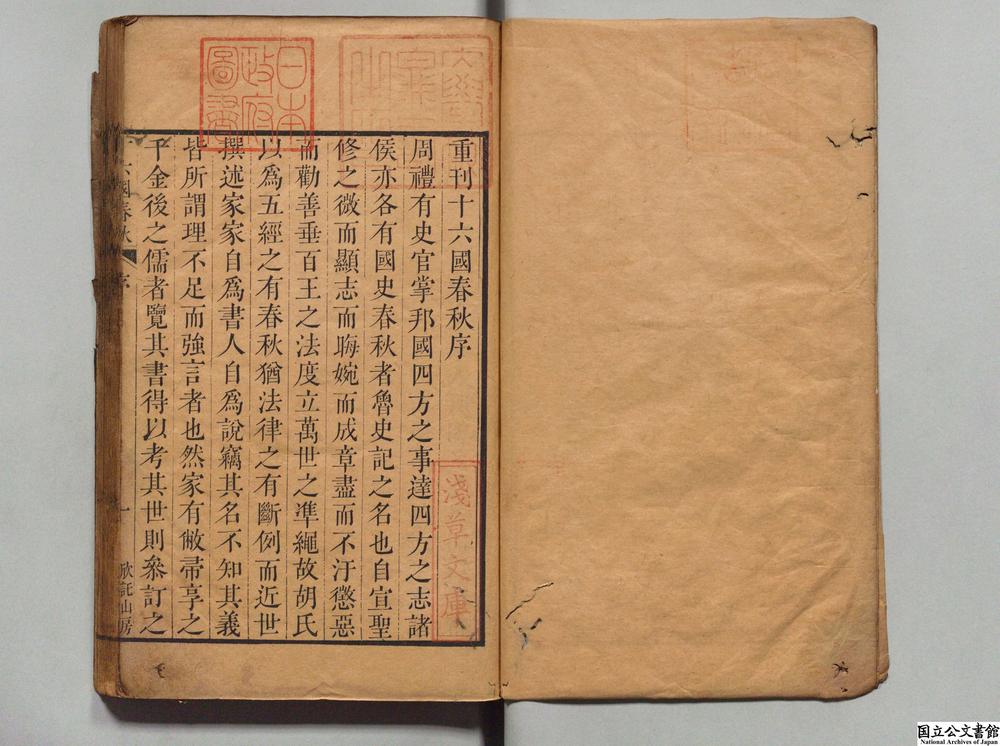 重刊十六國春秋序
周禮有史官掌邦國四方之事達四方之志諸
侯亦各有國史春秋者魯史記之名也自宣聖
修之微而顯志而晦婉而成章盡而不汙懲惡
而勸善垂百王之法度立萬世之準繩故胡氏
以爲五經之有春秋猶法律之有斷例而近世
撰述家家自爲書人自爲說竊其名不知其義
皆所謂理不足而強言者也然家有敝帚享之
千金後之儒者覽其書得以考其世則叅訂之
六國春秋
序
一
欣託山房
日本
政府
圖書
淺草文庫
国立公文書館
National Archives of Japan